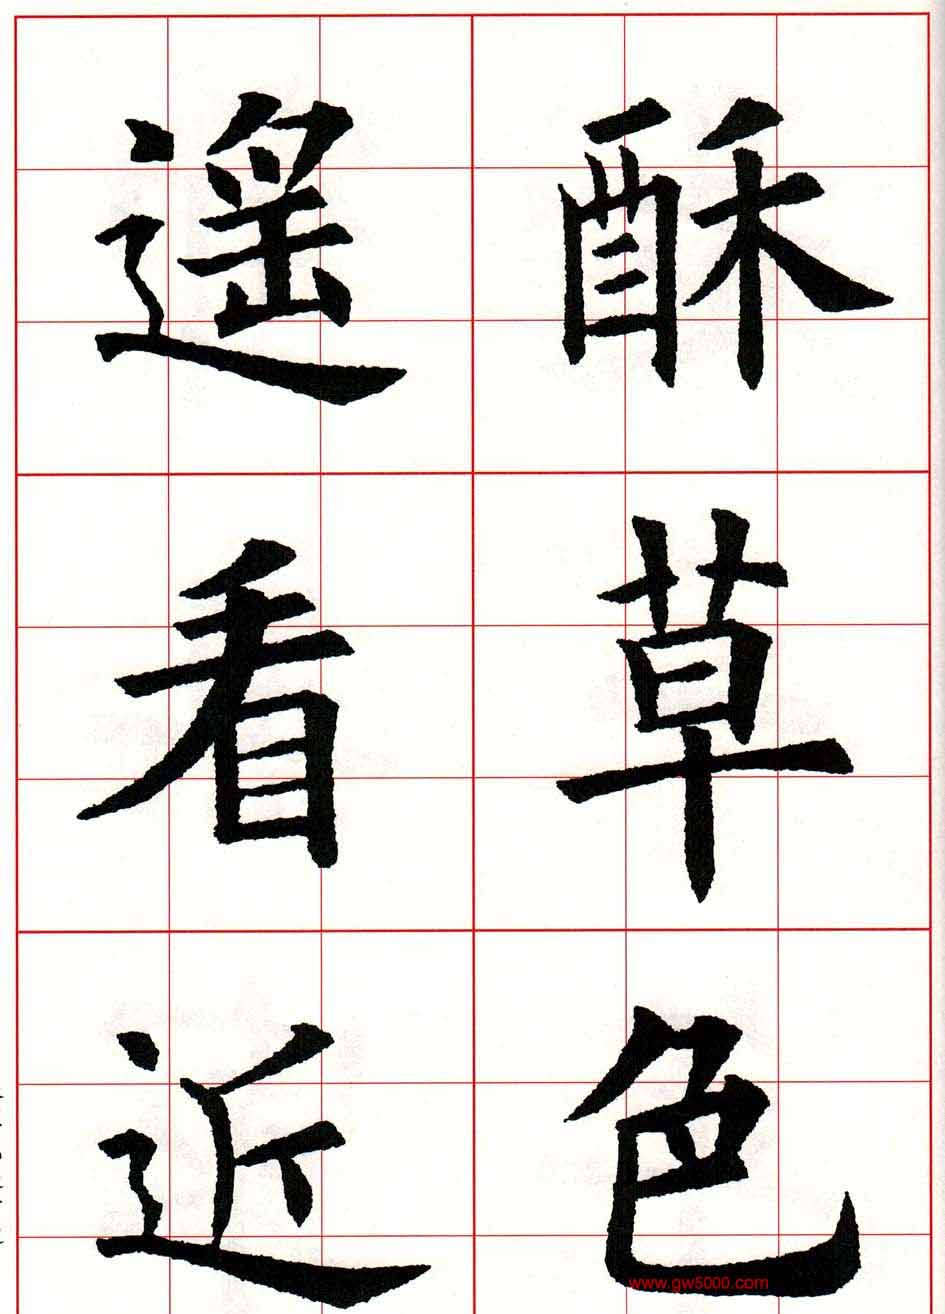 酥草色
遥看近
www.gw5000.com